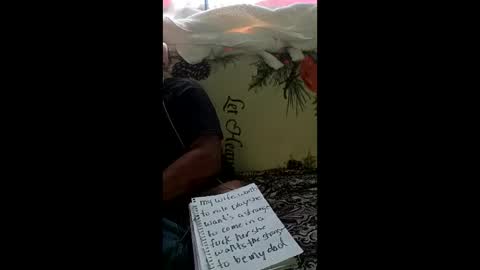 Let Hea
My wife want
to role play she
want's a strange
to come in a
fuck her she
wants the strange
to be my dad